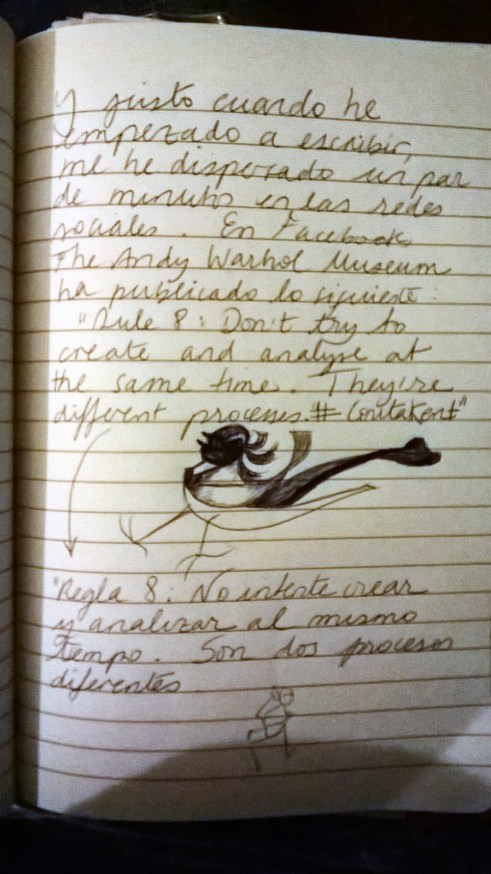 Y justo cuando he
empezado a escribir,
me he dispersado un par
de minutos en las redes
sociales. En Facebook,
The Andy Warhol Museum
ha publicado lo siguiente:
"Rule 8: Don't try to
create and analyse at
the same time. They're
different processes. #Coritakent"
"Regla 8: No intente crear
y analizar al mismo
tiempo. Son dos procesos
diferentes